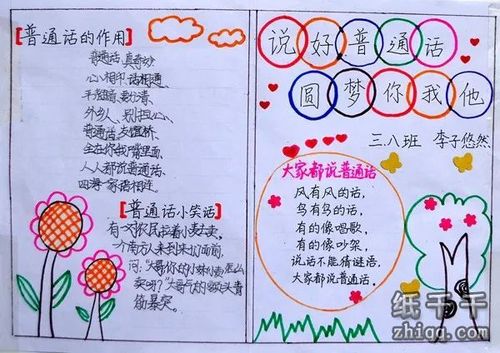 【普通话的作用】
普通话,真奇妙
心相印,话相通
外乡人、别担心。
普通话,友谊桥,
全在你我嘴里面,
人人都说普通话,
四海一家语相连。
【普通话小笑话】
有一农民拉着小麦去卖,
一个南方人来到来他面前,
问,"大哥,你的小妹
卖呀?"大哥气的
筋暴突。
说好普通话
圆梦你我他
三.八班 李子悠然
大家都说普通话
风有风的话,
鸟有鸟的话,
有的像唱歌,
有的像吵架,
说话不能猜谜语,
大家都说普通话。
纸千千
zhiqq.com